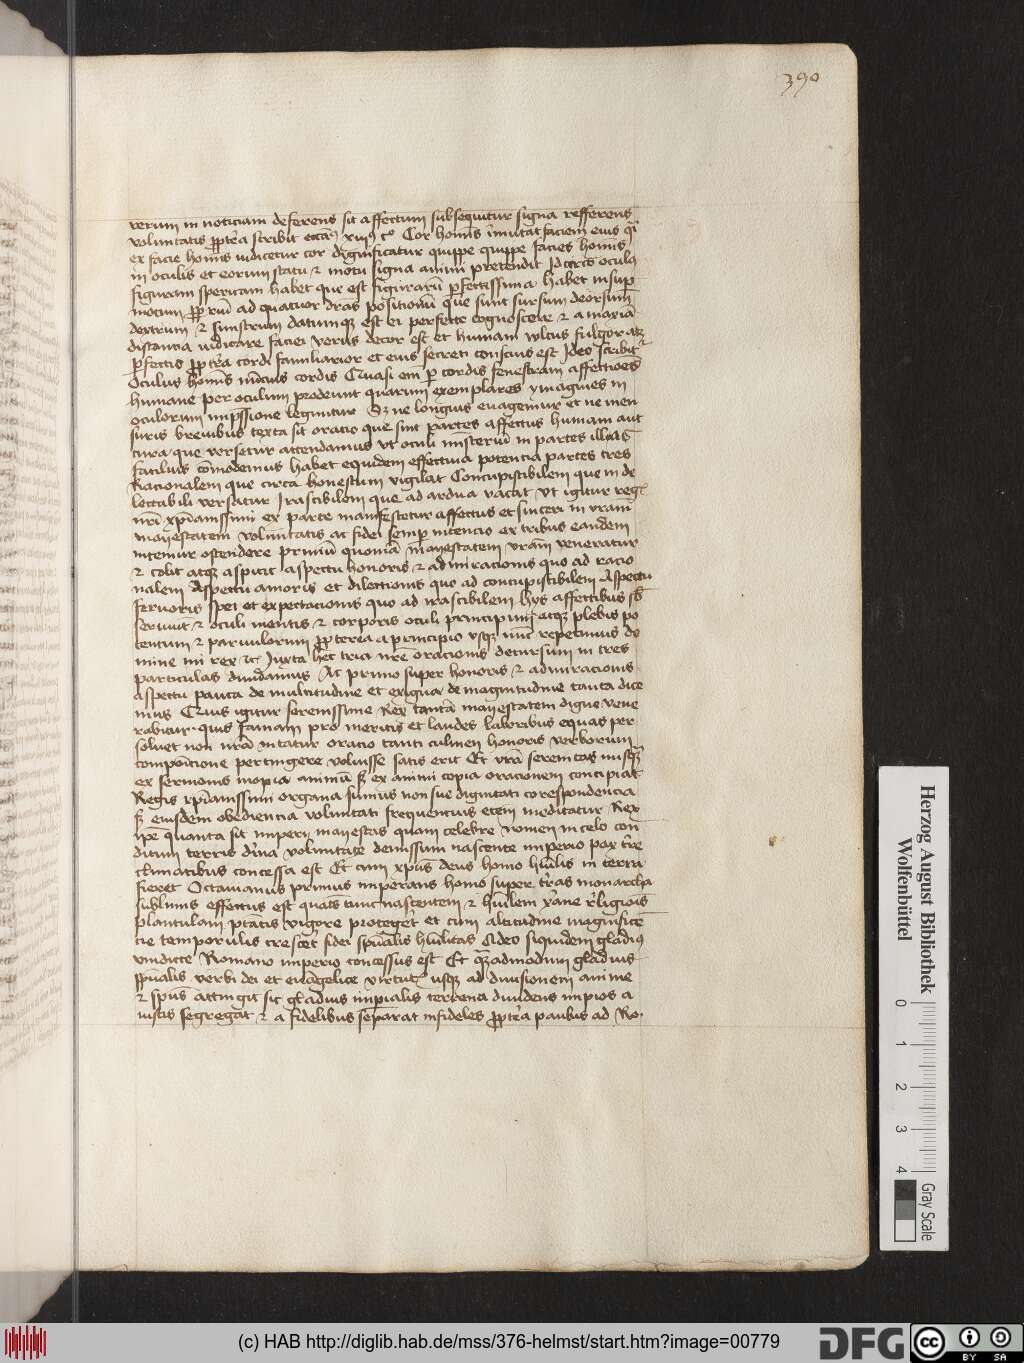 390
verum in noticiam deferens sit affectum subsequitur signa refferens
voluntatis ppt̄ea scribit xiijo co Cor hominis īmutat faciem eius
ex facie hoīnis iudicetur cor quippe facies hoīnis
in oculis et eorum statu et motu signa animi pretendit oculus
figuram spericam habet que est figurarū pfectissima habet insup
motum ad quatuor dr̄as positionū que sunt sursum deorsum
dextrum et sinistrum datumqꝫ est ei perfecte cognoscere et a maxīa
distancia iudicare faciei verus decor est et humani vultus fulgor atqꝫ
pfectus cordi familiarior et eius secreti conscius est Ideo scribit
Oculus hoīnis cordis Quasi em̄ p cordis fenestram affectiōes
humane per oculum prodeunt quarum exemplares ymagines in
oculorum impssione leguntur Sꝫ ne longius euagemur et ne men
suris breuibus texta sit oracio que sint partes affectus humani aut
circa que versetur attendamus vt oculi misteriū in partes illas
facilius comodemus habet equidem effectiua potencia partes tres
Racionalem que circa honestum vigilat Concupiscibilem que in de
lectabili versatur Irascibilem que ad ardua vacat vt igitur reg
nr̄i xp̄ianissimi ex parte manifestetur affectus et sinceri in vram̄
maiestatem voluntatis ac fidei semp intencio ex tribus eandem
nitemur ostendere primū quoniā maiestatem vram̄ veneratur
et colit atqꝫ aspicit aspectu honoris et admiracionis quo ad racio
nalem Aspectu amoris et dilectionis quo ad concupiscibilem Aspectu
feruoris spei et expectacionis quo ad irascibilem hijs affectibus sb̄
seruiūt et oculi mentis et corporis oculi principum atqꝫ plebis po
tentum et paruulorum propterea a principio vsqꝫ nūc repetimus do
mine mi rex etc Iuxta hec tria nr̄e oracionis decursum in tres
particulas diuidamus Ac primo super honoris et admiracionis
aspectu pauca de multitudine et exigua de magnitudine tanta dice
mus Quis igitur serenissime Rex tantā maiestatem digne vene
rabitur quis famam pro meritis et laudes laboribus equas per
soluet non nr̄a nitatur oracio tanti culmen honoris verborum
composicione pertingere voluisse satis erit Et vr̄a serenitas
ex sermonis inopia animū sꝫ ex animi copia oracionem concipiat
Regis xp̄ianissimi organa sumus non sue dignitati corespondencia
sꝫ eiusdem obediencia voluntati frequencius etem̄ meditatur Rex
ip̄e quanta sit imperij maiestas quam celebre nomen in celo con
ditum terris dīna voluntate demissum nascente imperio pax
climatibus concessa est Et cum xp̄us deus homo hūilis in terra
fieret Octauianus primus imperans homo super terras monarcha
sublimis effectus est quatenus tunc nascentem et hūilem xr̄iane religionis
plantulam ptātis vigore protegeret et cum altitudine magnificē
cie temporalis cresceret fidei spūalis hūilitas Adeo siquidem gladius
vindicte Romano imperio concessus est Et quēadmodum gladius
spūalis verbi dei et euāngelice virtutis vsqꝫ ad diuisionem anime
et spūs attingit sic gladius imperialis terrena diuidens impios a
iustis segregat et a fidelibus separat infideles ppt̄ea paulus ad Ro.
Herzog August Bibliothek
Wolfenbüttel
0 1 2 3 4
Gray Scale
(c) HAB http://diglib.hab.de/mss/376-helmst/start.htm?image=00779
DFG
cc BY SA